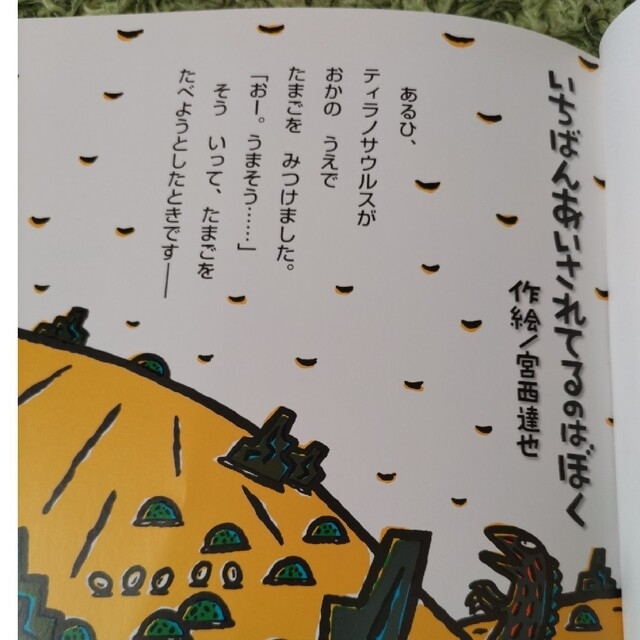 いちばんあいされてるのはぼく
作絵/宮西達也
あるひ、
ティラノサウルスが
おかの うえで
たまごを みつけました。
「おー。うまそう……」
そう いって、たまごを
たべようとしたときです——